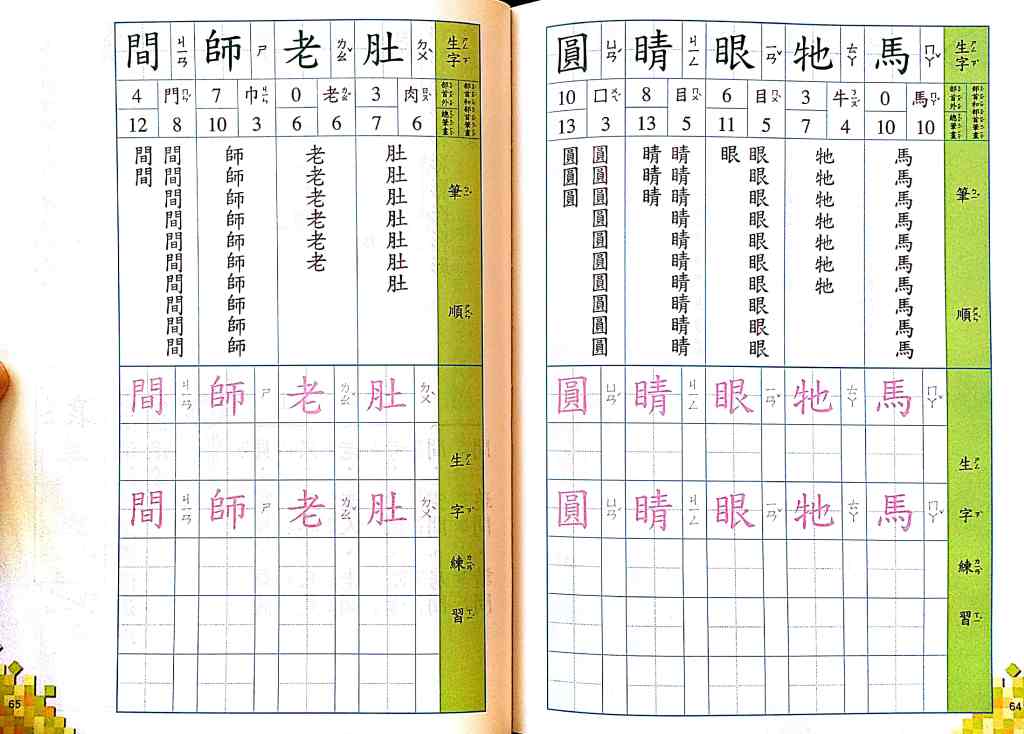 生字
部首和部首筆畫
部首外總筆畫
筆順
生字練習
馬 ㄇㄚˇ
馬 ㄇㄚˇ 0
10 10
馬馬馬馬馬馬馬馬馬馬
馬 ㄇㄚˇ
馬 ㄇㄚˇ
牠 ㄊㄚ
牛 ㄋㄧㄡˊ 3
4 7
牠牠牠牠牠牠牠
牠 ㄊㄚ
牠 ㄊㄚ
眼 ㄧㄢˇ
目 ㄇㄨˋ 6
5 11
眼眼眼眼眼眼眼眼眼眼
眼
眼 ㄧㄢˇ
眼 ㄧㄢˇ
睛 ㄐㄧㄥ
目 ㄇㄨˋ 8
5 13
睛睛睛睛睛睛睛睛睛睛
睛睛睛
睛 ㄐㄧㄥ
睛 ㄐㄧㄥ
圓 ㄩㄢˊ
囗 ㄨㄟˊ 10
3 13
圓圓圓圓圓圓圓圓圓圓
圓圓圓
圓 ㄩㄢˊ
圓 ㄩㄢˊ
64
生字
部首和部首筆畫
部首外總筆畫
筆順
生字練習
肚 ㄉㄨˋ
肉 ㄖㄡˋ 3
6 7
肚肚肚肚肚肚肚
肚 ㄉㄨˋ
肚 ㄉㄨˋ
老 ㄌㄠˇ
老 ㄌㄠˇ 0
6 6
老老老老老老
老 ㄌㄠˇ
老 ㄌㄠˇ
師 ㄕ
巾 ㄐㄧㄣ 7
3 10
師師師師師師師師師師
師 ㄕ
師 ㄕ
間 ㄐㄧㄢ
門 ㄇㄣˊ 4
8 12
間間間間間間間間間間
間間
間 ㄐㄧㄢ
間 ㄐㄧㄢ
65